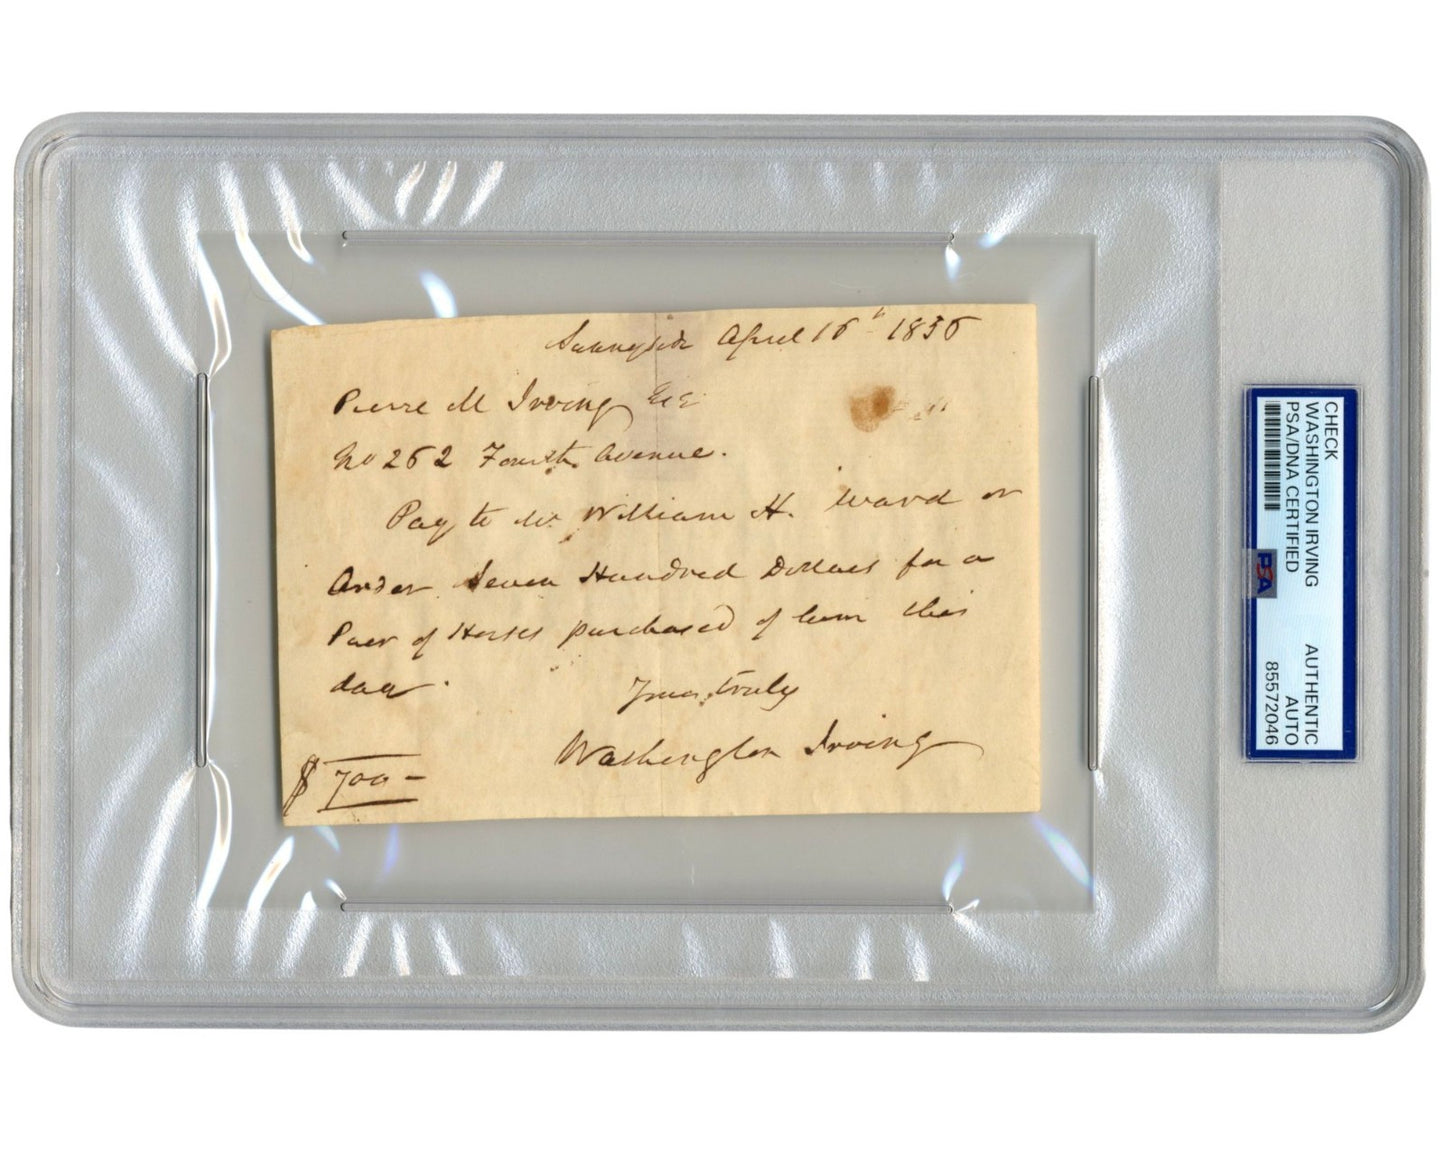 Sunnyside April 16th 1856
Pierre M Irving Esq
No 262 Fourth Avenue.
Pay to Mr William H. Ward or
Order Seven Hundred Dollars for a
Pair of Horses purchased of him this
day.
Yours truly
Washington Irving
$ 700-
CHECK
WASHINGTON IRVING
PSA/DNA CERTIFIED
PSA
AUTHENTIC
AUTO
85572046